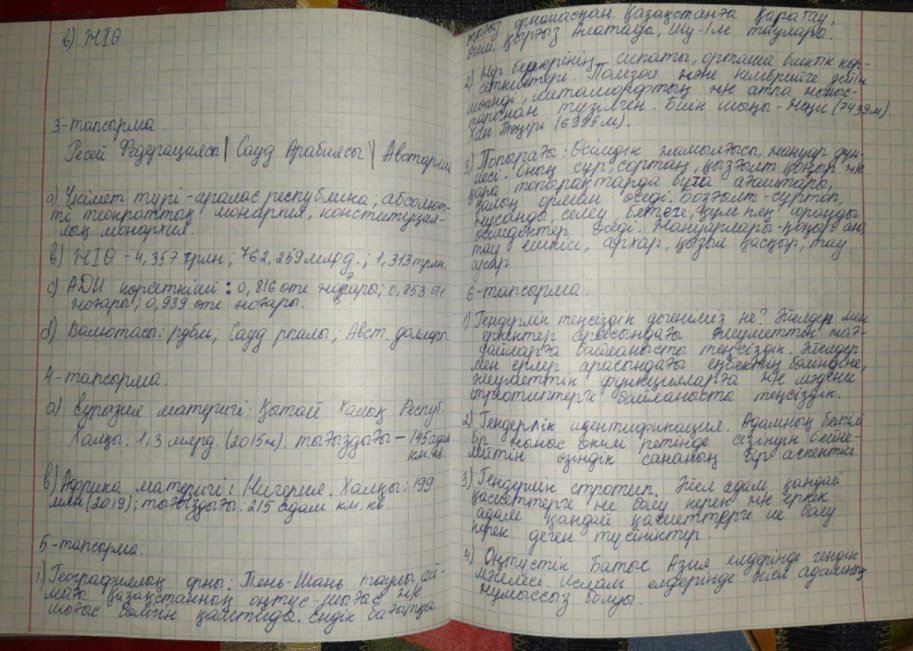 в) ЖІӨ
3-тапсырма.
Ресей Федерациясы | Сауд Арабиясы | Австралия
а) Үкімет түрі - аралас республика, абсолют-
ті теократтық монархия, конституция-
лық монархия.
в) ЖІӨ - 4,357 трлн; 762,259 млрд.; 1,313 трлн.
с) АДИ көрсеткіші: 0,816 өте жоғары; 0,853 өте
жоғары; 0,939 өте жоғары.
d) Валютасы: рубли; Сауд риалы; Авст. доллары
4-тапсырма.
а) Еуразия материгі: Қытай Халық Респуб.
Халқы: 1,3 млрд. (2015ж). тығыздығы - 145 адам
км.кв.
в) Африка материгі: Нигерия. Халқы: 199
млн (2019); тығыздығы: 215 адам км.кв.
5-тапсырма.
1) Географиялық орны: Тянь-Шань таулы ай-
мағы Қазақстанның оңтүс-шығыс ж/е
шығыс бөлігін қамтиды. Ендік бағытқа
орналасқан. Қазақстанға Қаратау,
Қырғыз Алатауы, Шу-Іле таулары.
2) Жер бедерінің сипаты, орташа биіктік көр-
сеткіштері. Палеозой және кембрийге дейін
метаморфтық ж/е атпа жыныс-
тарынан түзілген. Биік шыңы - Жеңіс (7439м)
Хан Тәңірі (6995м).
3) Топырағы: Өсімдік жамылғысы, жануар дүн-
иесі. Оның сұр, сортаң, қызғылт қоңыр ж/е
қара топырақтарда бұта ағаштары,
қалың орман өседі. Бозғылт-сұртаң,
жусанды, селеу бетеге, құм пен
өсімдіктер өседі. Жануарлары - қоңыр аю
тау ешкісі, арқар, қызыл қасқыр, тау
суыр.
6-тапсырма.
1) Гендерлік теңсіздік дегеніміз не? Әйелдер мен
еркектер арасындағы әлеуметтік жағ-
дайларға байланысты теңсіздік. Әйелдер
мен ерлер арасындағы еңбектің бөлінуіне,
әлеуметтік функцияларға ж/е мәдени
стреотиптерге байланысты теңсіздік.
2) Гендерлік идентификация. Адамның белгілі
бір жыныс өкілі ретінде сезінуін бейне-
лейтін өзіндік сананың бір аспектісі
3) Гендерлік стротип. Әйел адам қандай
қасиеттерге ие болу керек ж/е еркек
адам қандай қасиеттерге ие болу
керек деген түсініктер.
4) Оңтүстік Батыс Азия елдерінде гендік
мәселесі. Ислам елдерінде әйел адамның
жұмыссыз болуы.